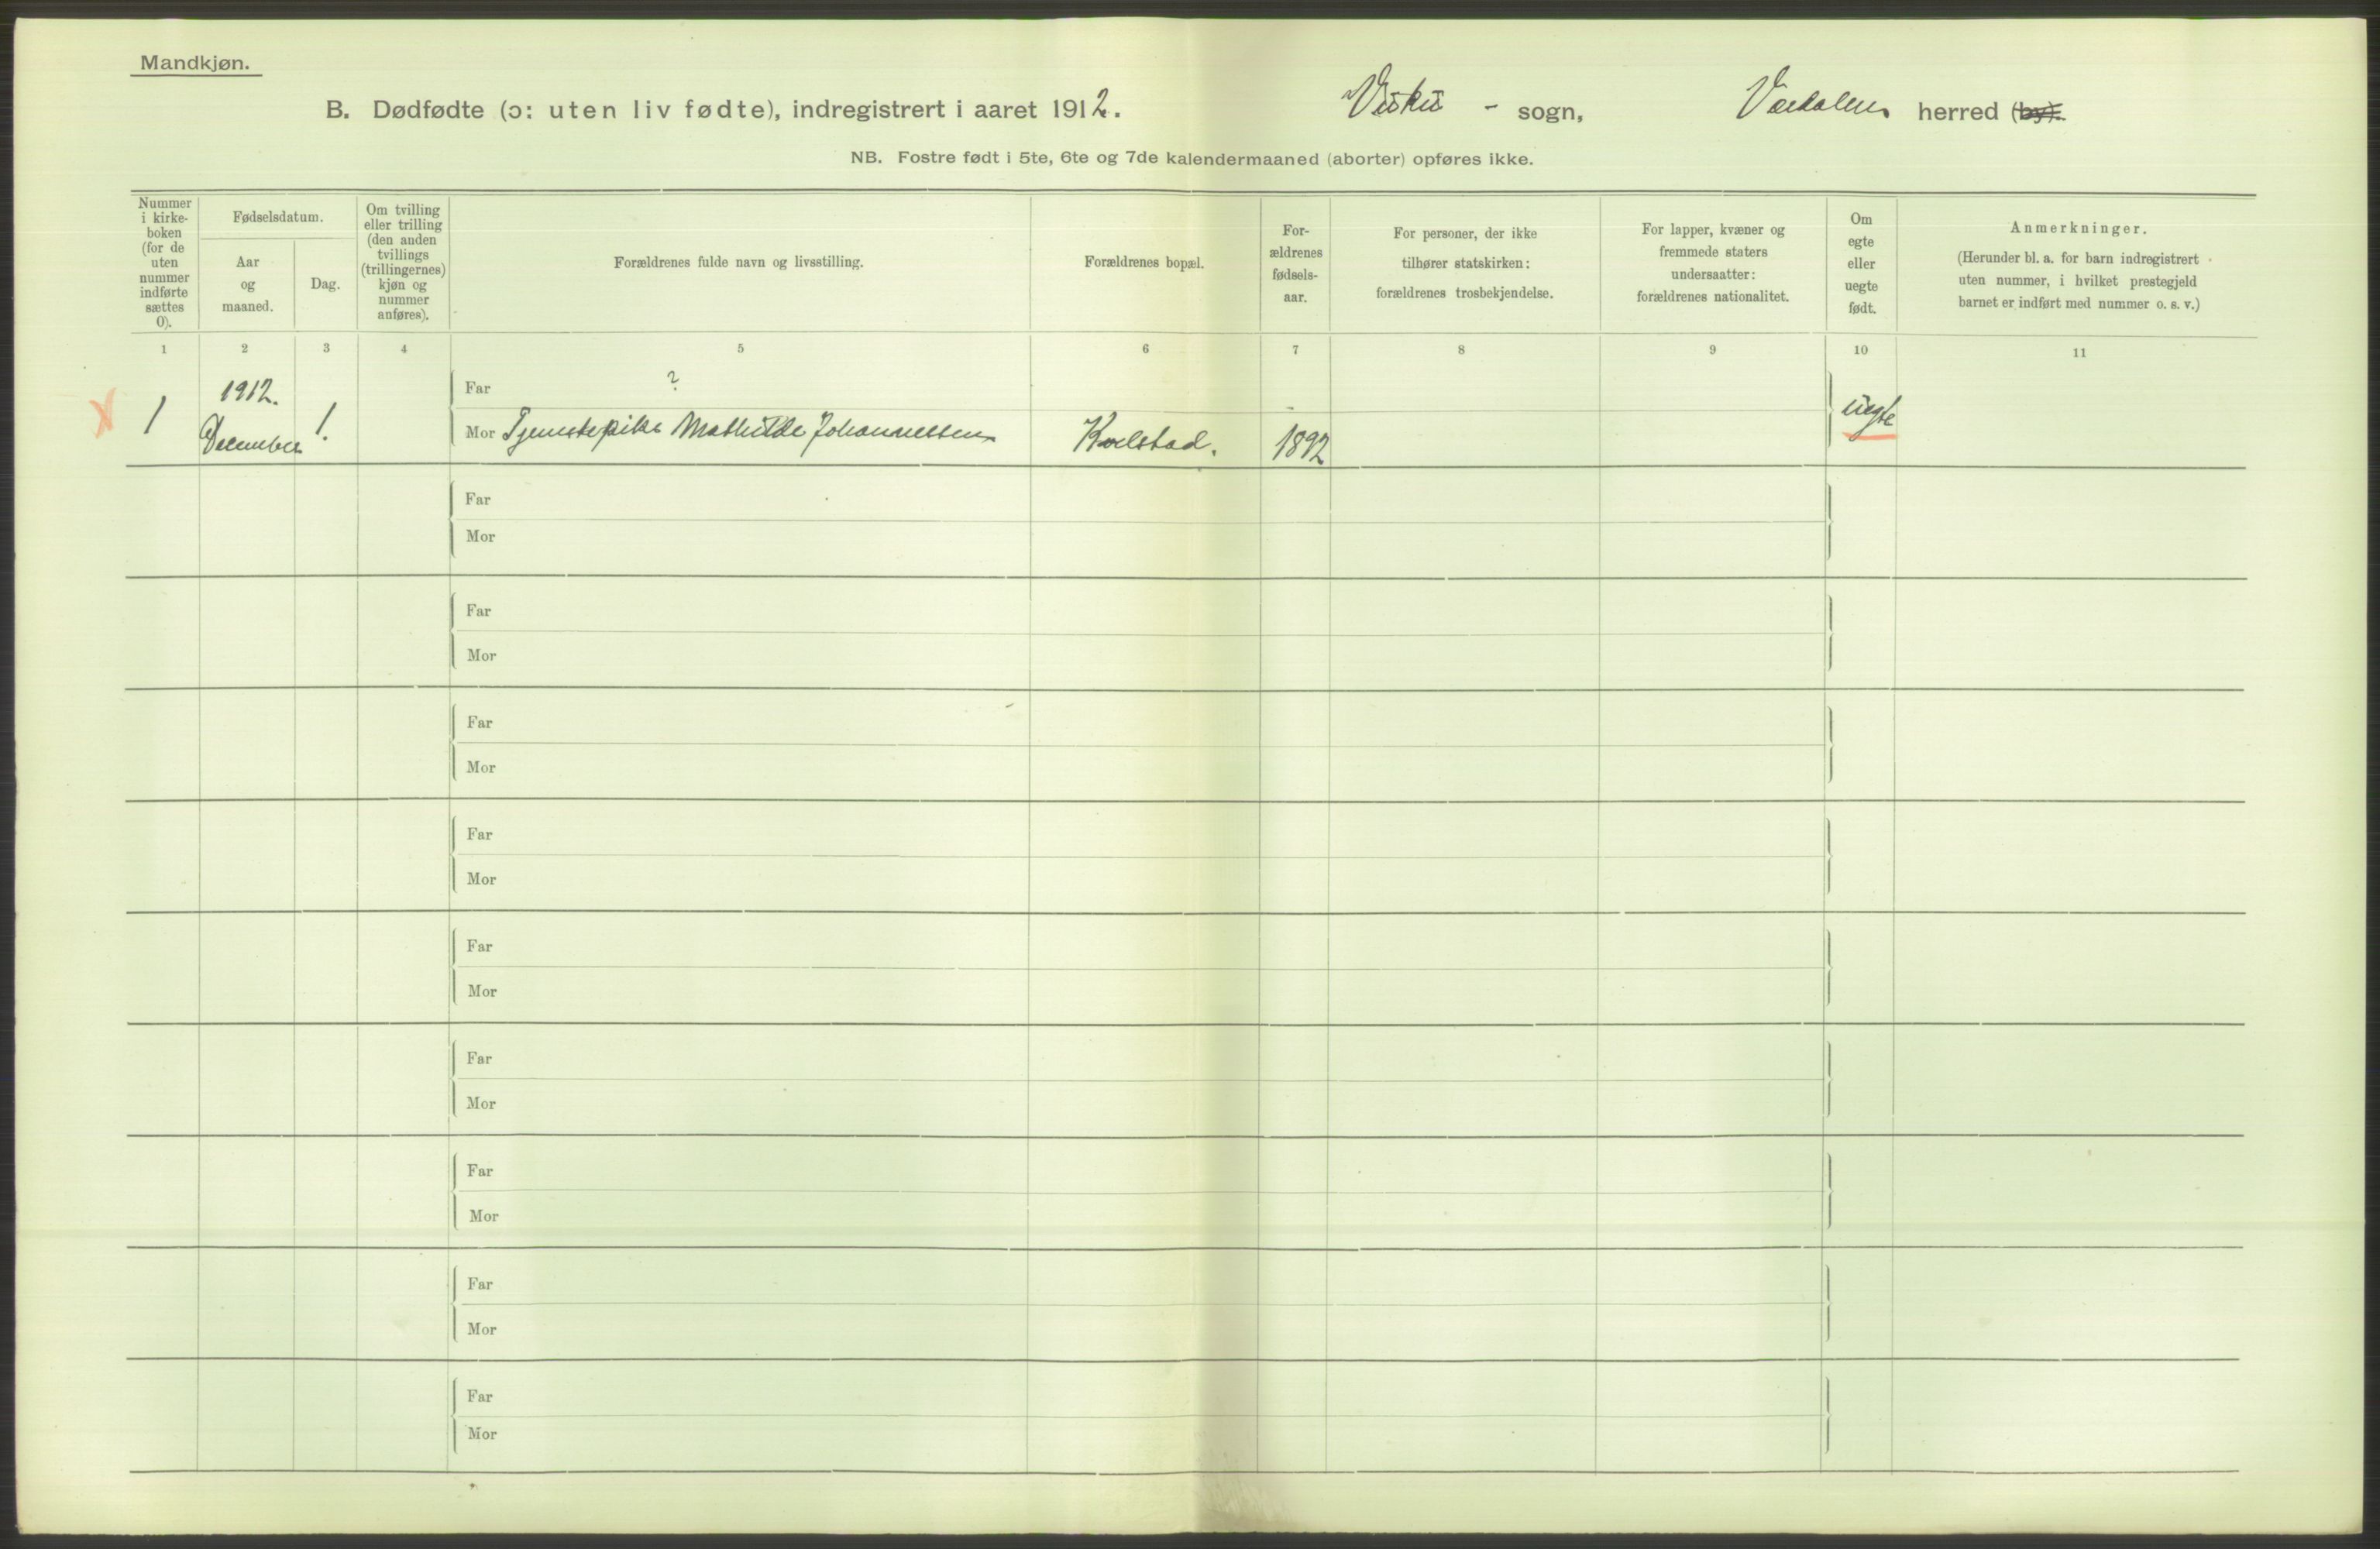 Mandkjøn.
B. Dødfødte (ɔ: uten liv fødte), indregistrert i aaret 1912. Vuku - sogn, Værdalens herred (by).
NB. Fostre født i 5te, 6te og 7de kalendermaaned (aborter) opføres ikke.
Nummer
i kirke-
boken
(for de
uten
nummer
indførte
sættes
0).
Fødselsdatum.
Aar
og
maaned.
Dag.
Om tvilling
eller trilling
(den anden
tvillings
(trillingernes)
kjøn og
nummer
anføres).
Forældrenes fulde navn og livsstilling.
Forældrenes bopæl.
For-
ældrenes
fødsels-
aar.
For personer, der ikke
tilhører statskirken:
forældrenes trosbekjendelse.
For lapper, kvæner og
fremmede staters
undersaatter:
forældrenes nationalitet.
Om
egte
eller
uegte
født.
Anmerkninger.
(Herunder bl. a. for barn indregistrert
uten nummer, i hvilket prestegjeld
barnet er indført med nummer o. s. v.)
1 2 3 4 5 6 7 8 9 10 11
1912. Far ? -
1 December 1. Mor Tjenestepike Mathilde Johannessen Kvelstad. 1892 uegte
Far
Mor
Far
Mor
Far
Mor
Far
Mor
Far
Mor
Far
Mor
Far
Mor
Far
Mor
Far
Mor